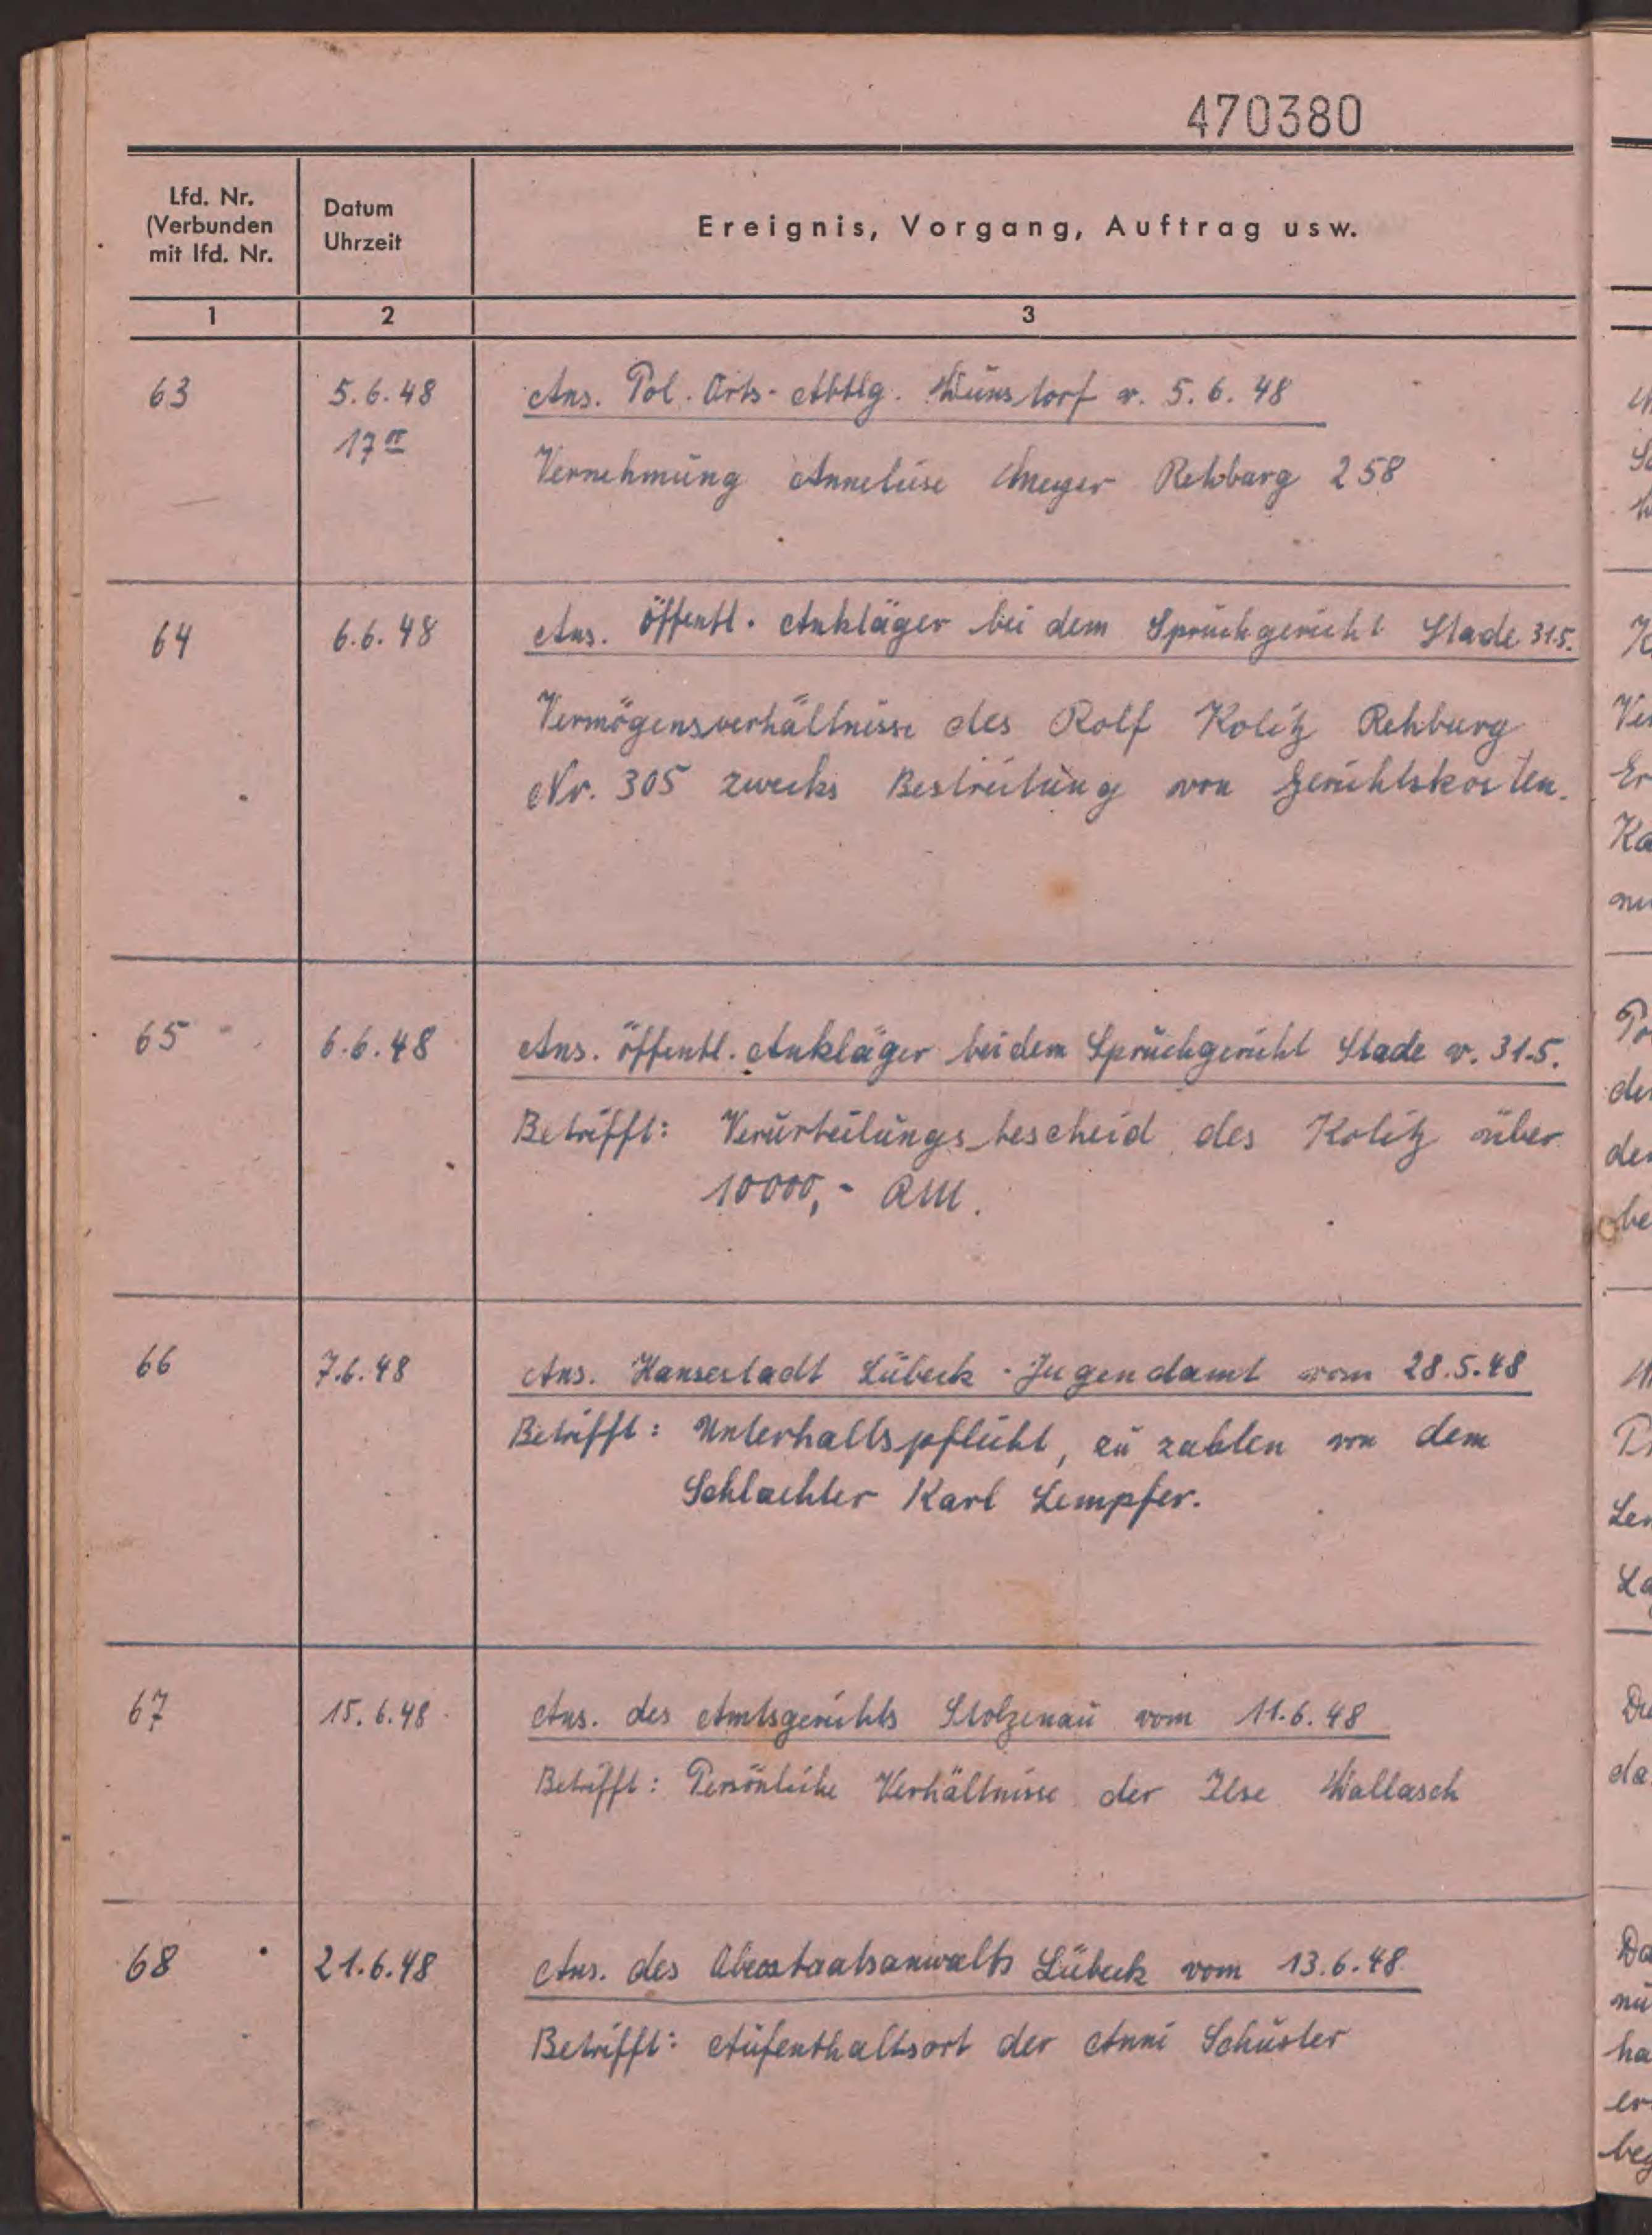 470380
Lfd. Nr.
(Verbunden
mit lfd. Nr.
Datum
Uhrzeit
Ereignis, Vorgang, Auftrag usw.
1 2 3
63 5.6.48 Ans. Pol. Orts-Abtlg. Wunstorf v. 5.6.48
17 00 Vernehmung Anneliese Meyer Rehburg 258
64 6.6.48 Ans. Öffentl. Ankläger bei dem Spruchgericht Stade 31.5.
Vermögensverhältnisse des Rolf Kolitz Rehburg
Nr. 305 zwecks Bestreitung von Gerichtskosten.
65 6.6.48 Ans. öffentl. Ankläger bei dem Spruchgericht Stade v. 31.5.
Betrifft: Verurteilungsbescheid des Kolitz über
10000,- RM.
66 7.6.48 Ans. Hansestadt Lübeck - Jugendamt vom 28.5.48
Betrifft: Unterhaltspflicht, zu zahlen von dem
Schlachter Karl Lempfer.
67 15.6.48 Ans. des Amtsgerichts Stolzenau vom 11.6.48
Betrifft: Persönliche Verhältnisse der Ilse Wallasch
68 21.6.48 Ans. des Oberstaatsanwalts Lübeck vom 13.6.48
Betrifft: Aufenthaltsort der Anni Schuster